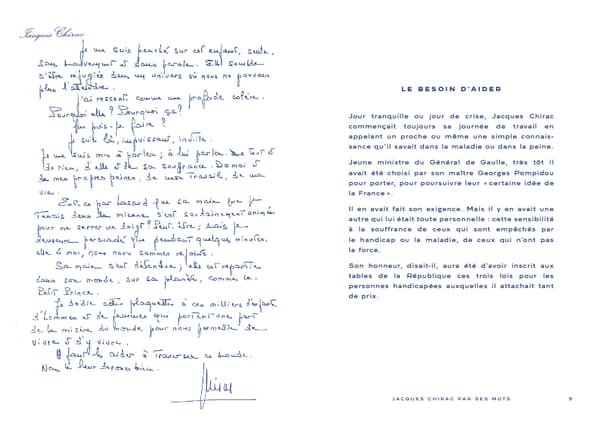 Jacques Chirac
Je me suis penché sur cet enfant, seule,
sans mouvement et sans parole. Elle semble
s'être réfugiée dans un univers où nous ne pouvons
plus l'atteindre.
J'ai ressenti comme une profonde colère.
Pourquoi elle ? Pourquoi ça ?
Que puis-je faire ?
Je suis là, impuissant, inutile.
Je me suis mis à parler ; à lui parler. De tout et
de rien, d'elle et de sa souffrance. De moi et
de mes propres peines, de mon travail, de ma
vie.
Est-ce par hasard que sa main que je
tenais dans la mienne s'est soudainement animée
pour me serrer un doigt ? Peut-être ; mais je
demeure persuadé que pendant quelques minutes,
elle et moi, nous nous sommes rejoints.
Sa main s'est détendue ; elle est repartie
dans son monde, sur sa planète, comme le
Petit Prince.
Je dédie cette plaquette à ces milliers d'enfants,
d'hommes et de femmes qui portent une part
de la misère du monde pour nous permettre de
vivre et d'y vivre.
Il faut les aider à traverser ce monde.
Nous le leur devons bien.
LE BESOIN D'AIDER
Jour tranquille ou jour de crise, Jacques Chirac
commençait toujours sa journée de travail en
appelant un proche ou même une simple connais-
sance qu'il savait dans la maladie ou dans la peine.
Jeune ministre du Général de Gaulle, très tôt il
avait été choisi par son maître Georges Pompidou
pour porter, pour poursuivre leur « certaine idée de
la France ».
Il en avait fait son exigence. Mais il y en avait une
autre qui lui était toute personnelle : cette sensibilité
à la souffrance de ceux qui sont empêchés par
le handicap ou la maladie, de ceux qui n'ont pas
la force.
Son honneur, disait-il, aura été d'avoir inscrit aux
tables de la République ces trois lois pour les
personnes handicapées auxquelles il attachait tant
de prix.
JACQUES CHIRAC PAR SES MOTS 9